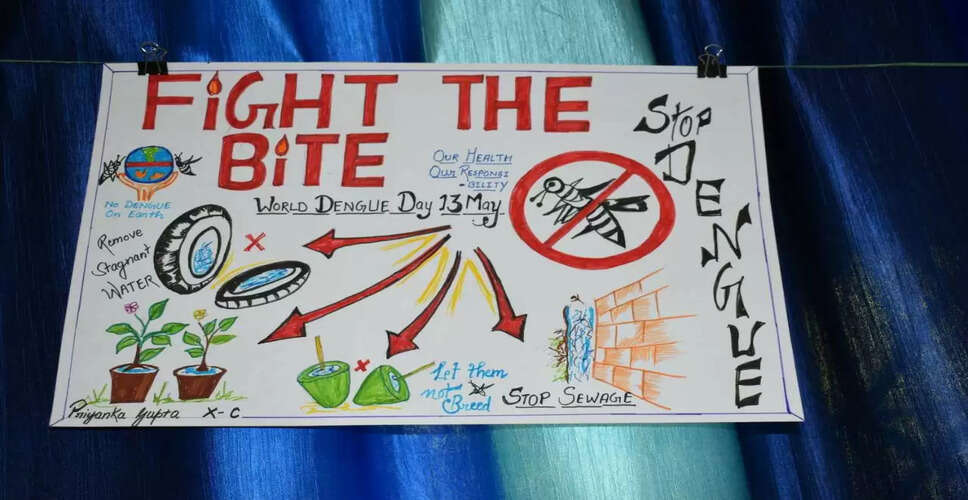 FiGHT THE
BiTE
OUR HEALTH
OUR RESPONSI
-BILITY
WORLD DENGUE Day 13 May
StoP
DENGUE
NO DENGUE
On Earth
Remove
Stagnant
WATER
Let them
not
Breed
STOP SEWAGE
Priyanka Gupta X-C